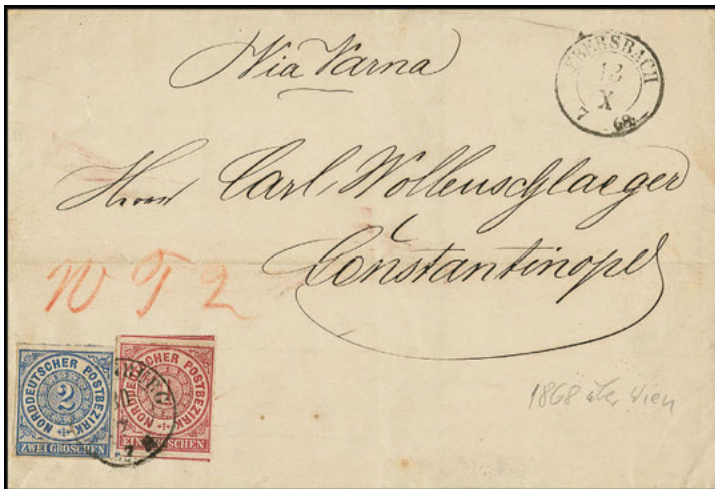 Via Varna
EBERSBACH
13
X
7 68
Herrn Carl Wollenschlaeger
Constantinopel
W F 2
1868 über Wien
NORDDEUTSCHER POSTBEZIRK
2
ZWEI GROSCHEN
NORDDEUTSCHER POSTBEZIRK
EIN GROSCHEN